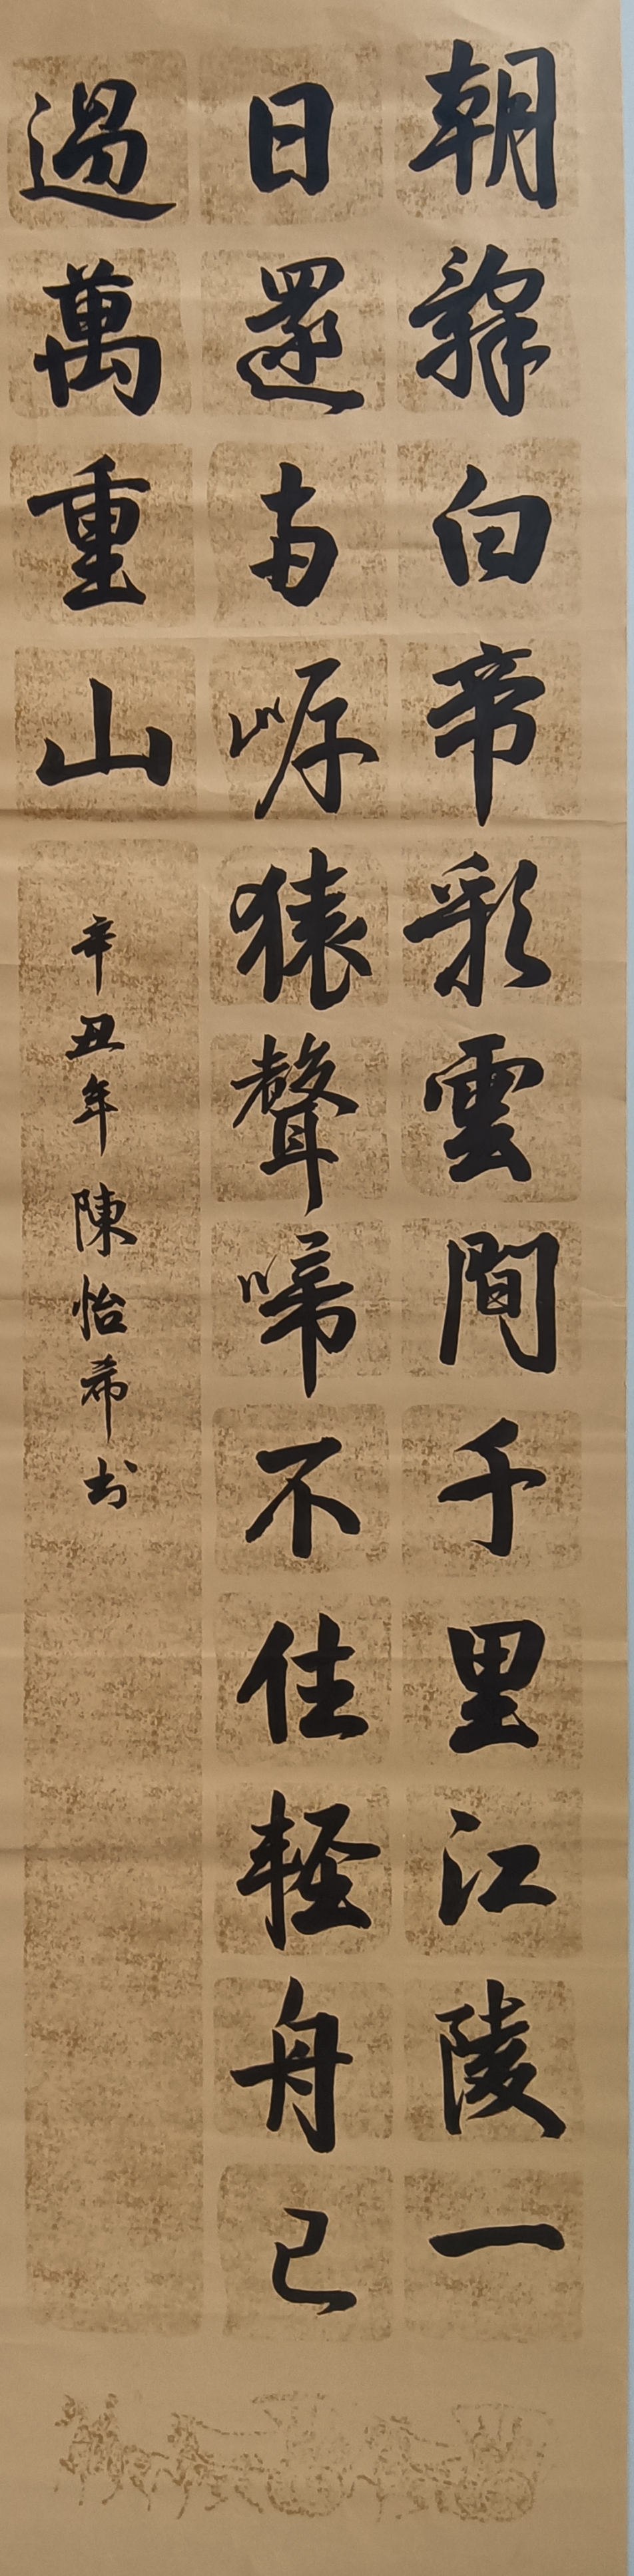 朝辭白帝彩雲間千里江陵一
日還两岸猿聲啼不住輕舟已
過萬重山
辛丑年陳怡希书